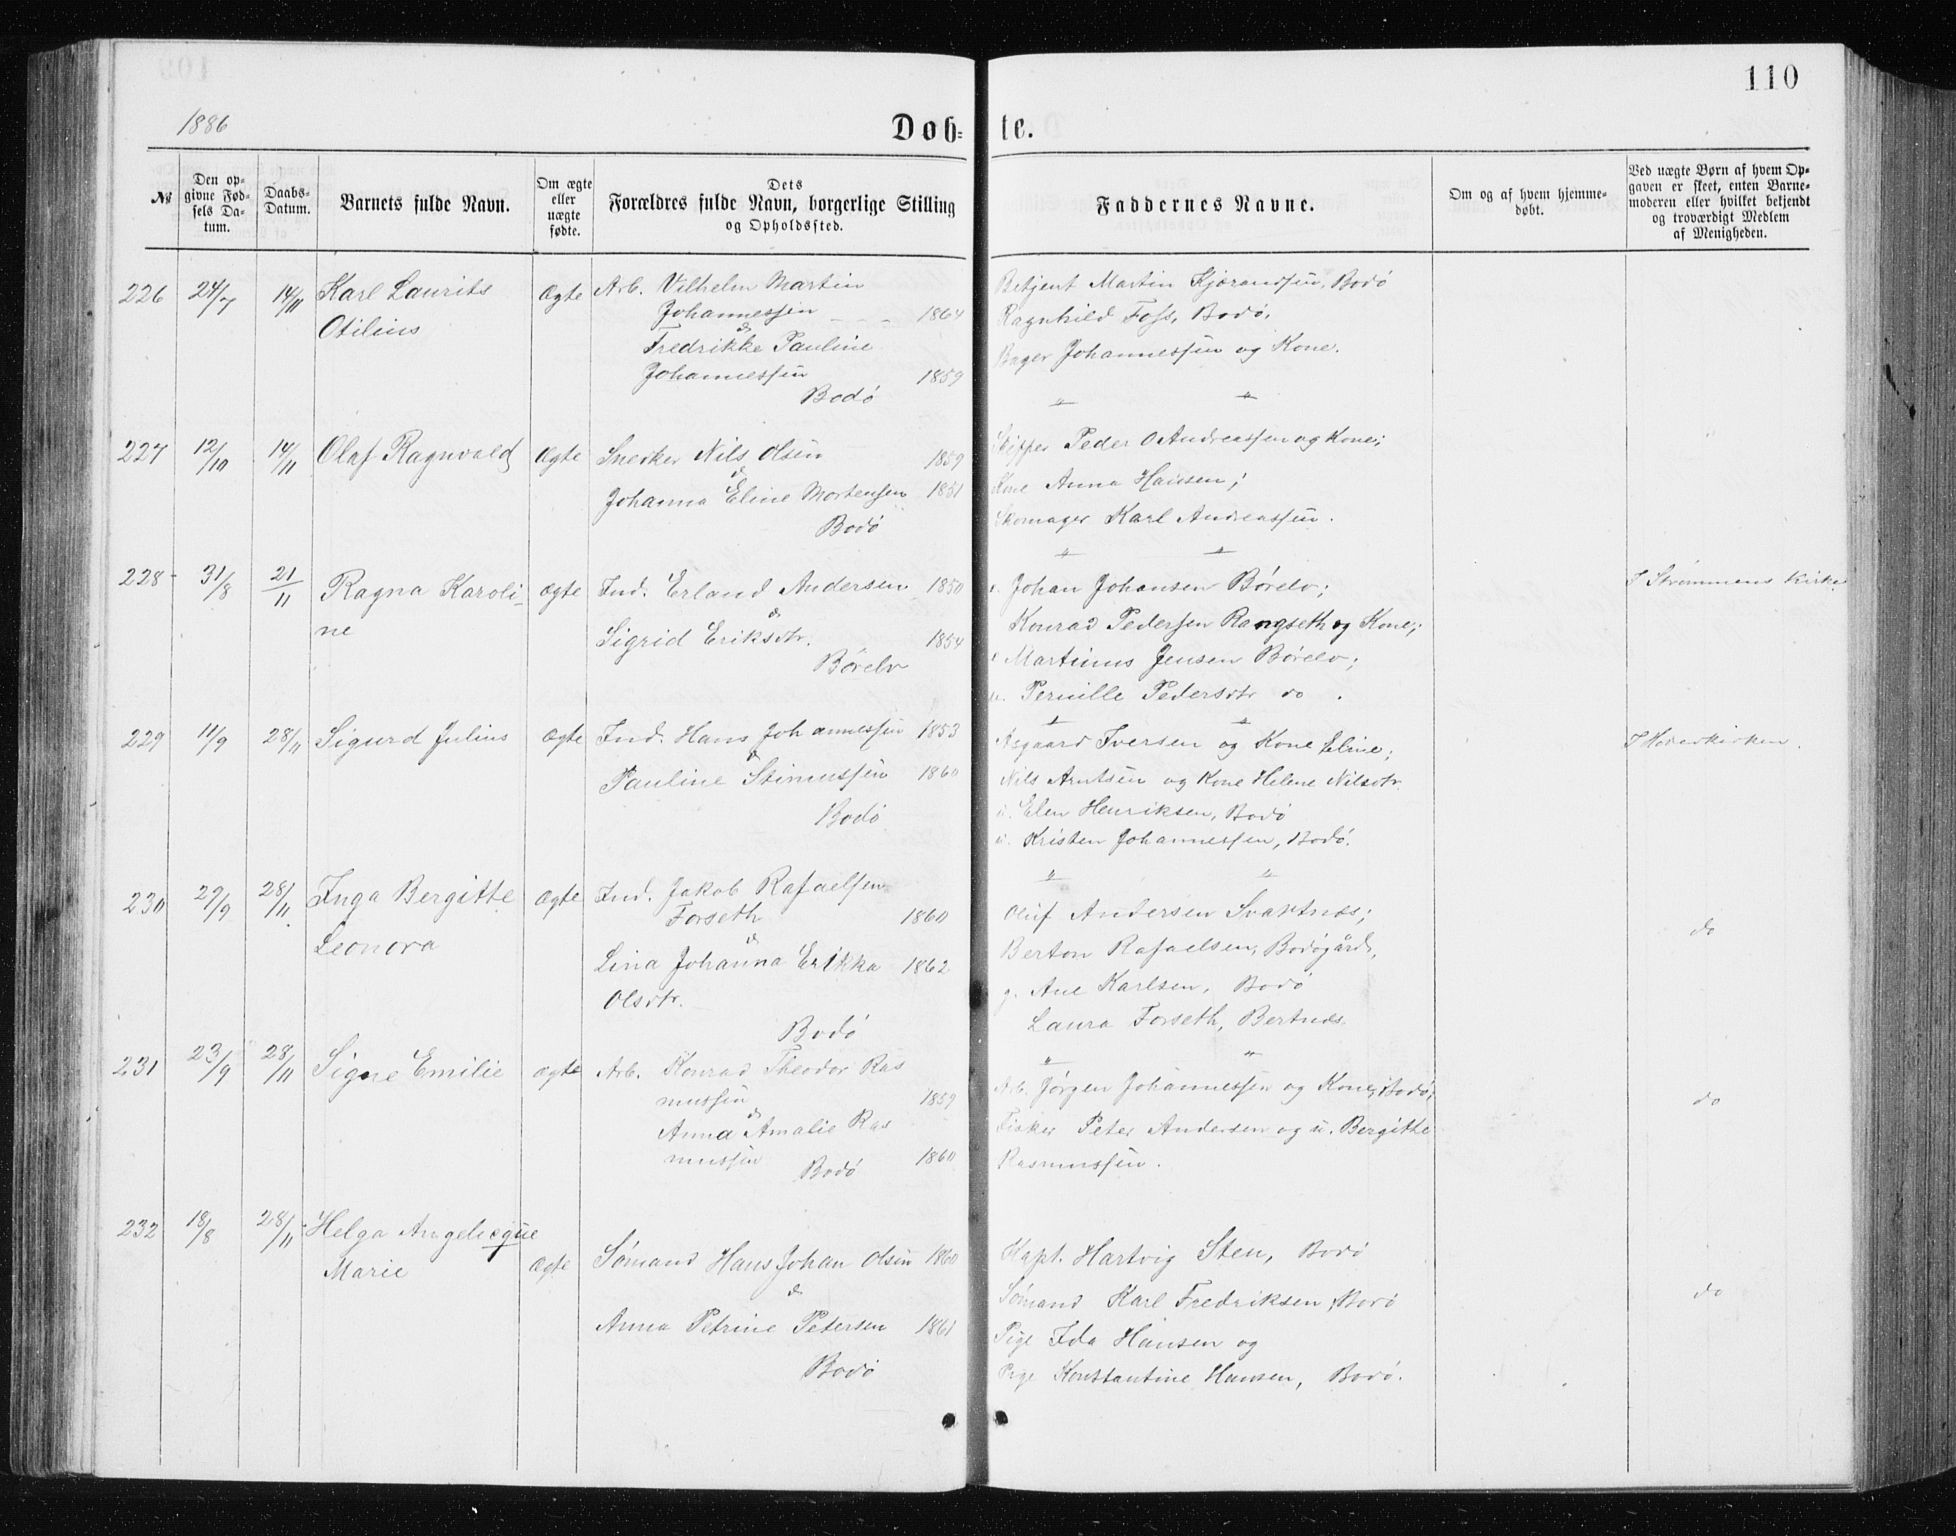 110
1886
Døb- te.
№
Den opgivne Fødsels Datum.
Daabs-Datum.
Barnets fulde Navn.
Om ægte eller uægte fødte.
Dets Forældres fulde Navn, borgerlige Stilling og Opholdssted.
Faddernes Navne.
Om og af hvem hjemmedøbt.
Ved uægte Børn af hvem Opgaven er skeet, enten Barnemoderen eller hvilket bekjendt og troværdigt Medlem af Menigheden.
226 24/7 14/11 Karl Laurits Ægte Arb. Vilhelm Martin
Otilius Johannessen 1864
&
Fredrikke Pauline
Johannessen 1859
Bodø
Betjent Martin Kjørandsen, Bodø
Ragnhild Foss, Bodø.
Bager Johannessen og Kone.
" "
227 12/10 14/11 Olaf Ragnvald Ægte Snedker Nils Olsen 1859
&
Johanna Eline Mortensen 1851
Bodø
Skipper Peder O Andreassen og Kone;
Kone Anna Hansen;
Skomager Karl Andreassen.
" "
228 31/8 21/11 Ragna Karoli- ægte Ind. Erland Andersen 1850
ne &
Sigrid Eriksdtr. 1854
Børelv
Johan Johansen Børelv;
Konrad Pedersen Rangseth og Kone;
Martinus Jensen Børelv;
u. Pernille Pedersdtr do.
I Strømmens Kirke.
" "
229 11/9 28/11 Sigurd Julius Ægte Ind. Hans Johannessen 1853
&
Pauline Stimussen 1860
Bodø
Asgaard Iversen og Kone Eline;
Nils Arntsen og Kone Helene Nilsdtr.
u. Elen Henriksen, Bodø
u. Kristen Johannessen, Bodø.
I Hovedkirken.
" "
230 27/9 28/11 Inga Bergitte Ægte Ind. Jakob Rafaelsen
Leonora Forseth 1860
&
Lina Johanna Erikka 1862
Olsdtr.
Bodø
Oluf Andersen Svartnæs;
Berton Rafaelsen, Bodøgård,
g. Ane Karlsen, Bodø
Laura Forseth, Bertnæs.
do
" "
231 23/9 28/11 Signe Emilie ægte Arb. Konrad Theodor Ras
mussen 1859
&
Anna Amalie Ras
mussen 1860
Bodø
Arb. Jørgen Johannessen og Kone, Bodø;
Fisker Peter Andersen og u. Bergitte
Rasmussen.
do
232 18/8 28/11 Helga Angelicque
Marie ægte Sømand Hans Johan Olsen 1860
&
Anna Petrine Petersen 1861
Bodø
Kapt. Hartvig Sten, Bodø
Sømand Karl Fredriksen, Bodø
Pige Ida Hansen og
Pige Konstantine Hansen, Bodø.
do